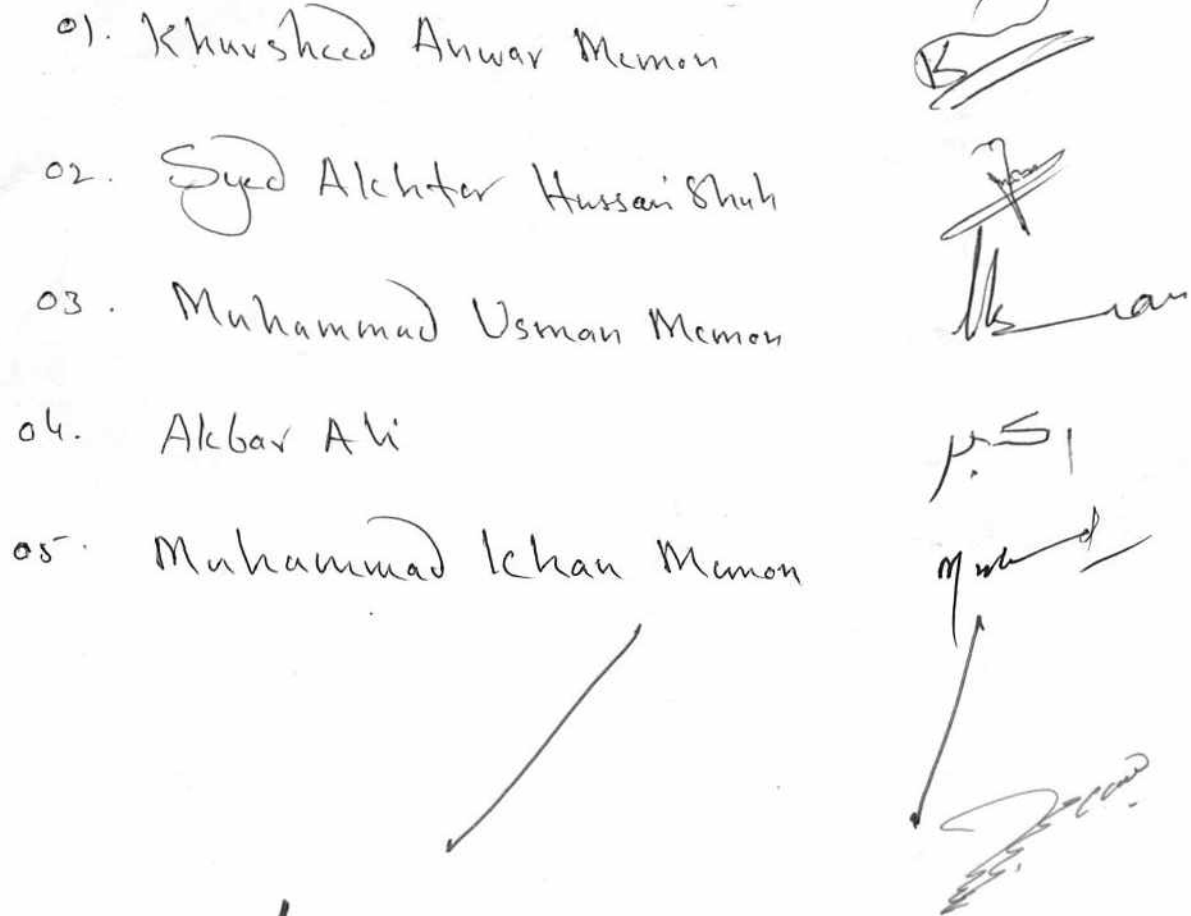 01. Khursheed Anwar Memon
02. Syed Akhter Hussain Shah
03. Muhammad Usman Memon
04. Akbar Ali اکبر
05. Muhammad Khan Memon